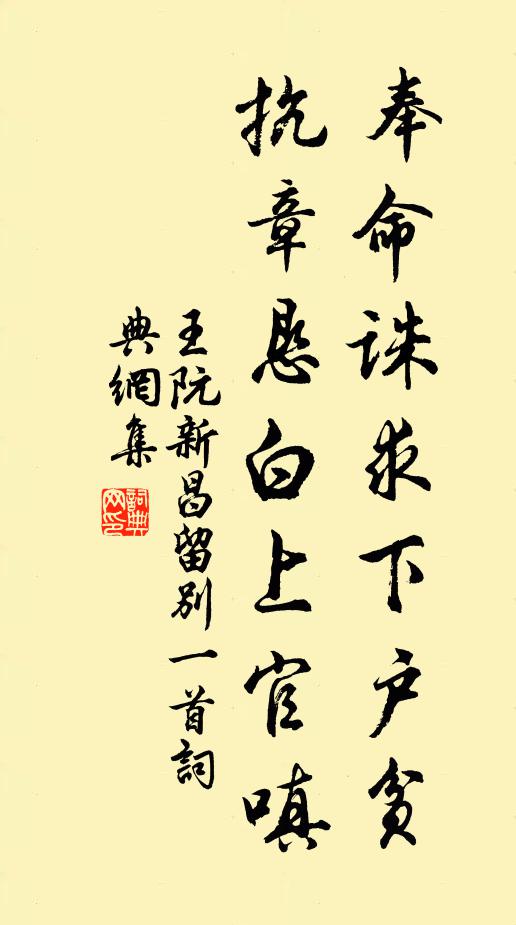 奉命誅求下户貧
抗章恳白上官嗔
王阮新昌留别一首詞
典網集
詞典
网印